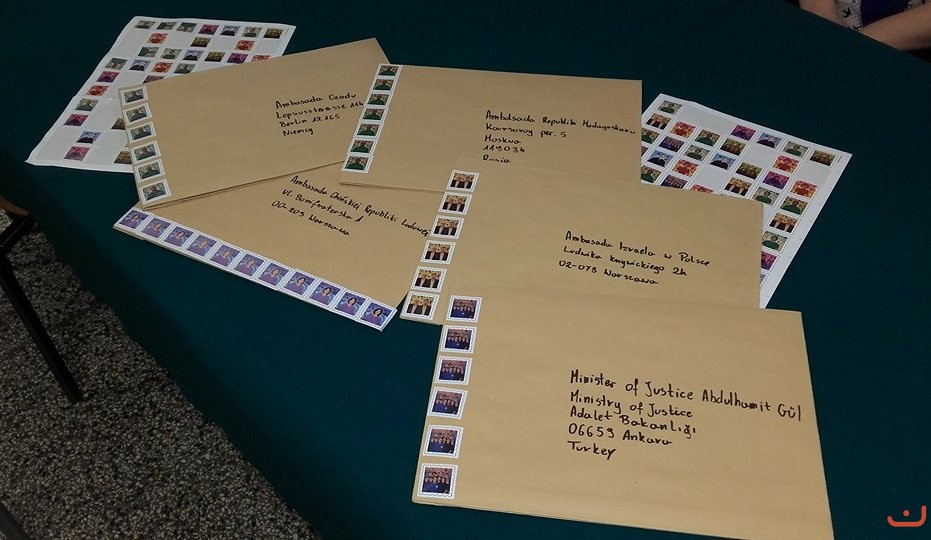 Ambasada Czadu
Lepsiusstrasse 114
Berlin 12165
Niemcy
Ambasada Republiki Madagaskaru
per. 5
Moskwa
119034
Rosja
Ambasada Chińskiej Republiki Ludowej
ul. Bonifraterska 1
00-203 Warszawa
Ambasada Izraela w Polsce
Ludwika Krzywickiego 24
02-078 Warszawa
Minister of Justice Abdulhamit Gül
Ministry of Justice
Adalet Bakanlığı
06659 Ankara
Turkey